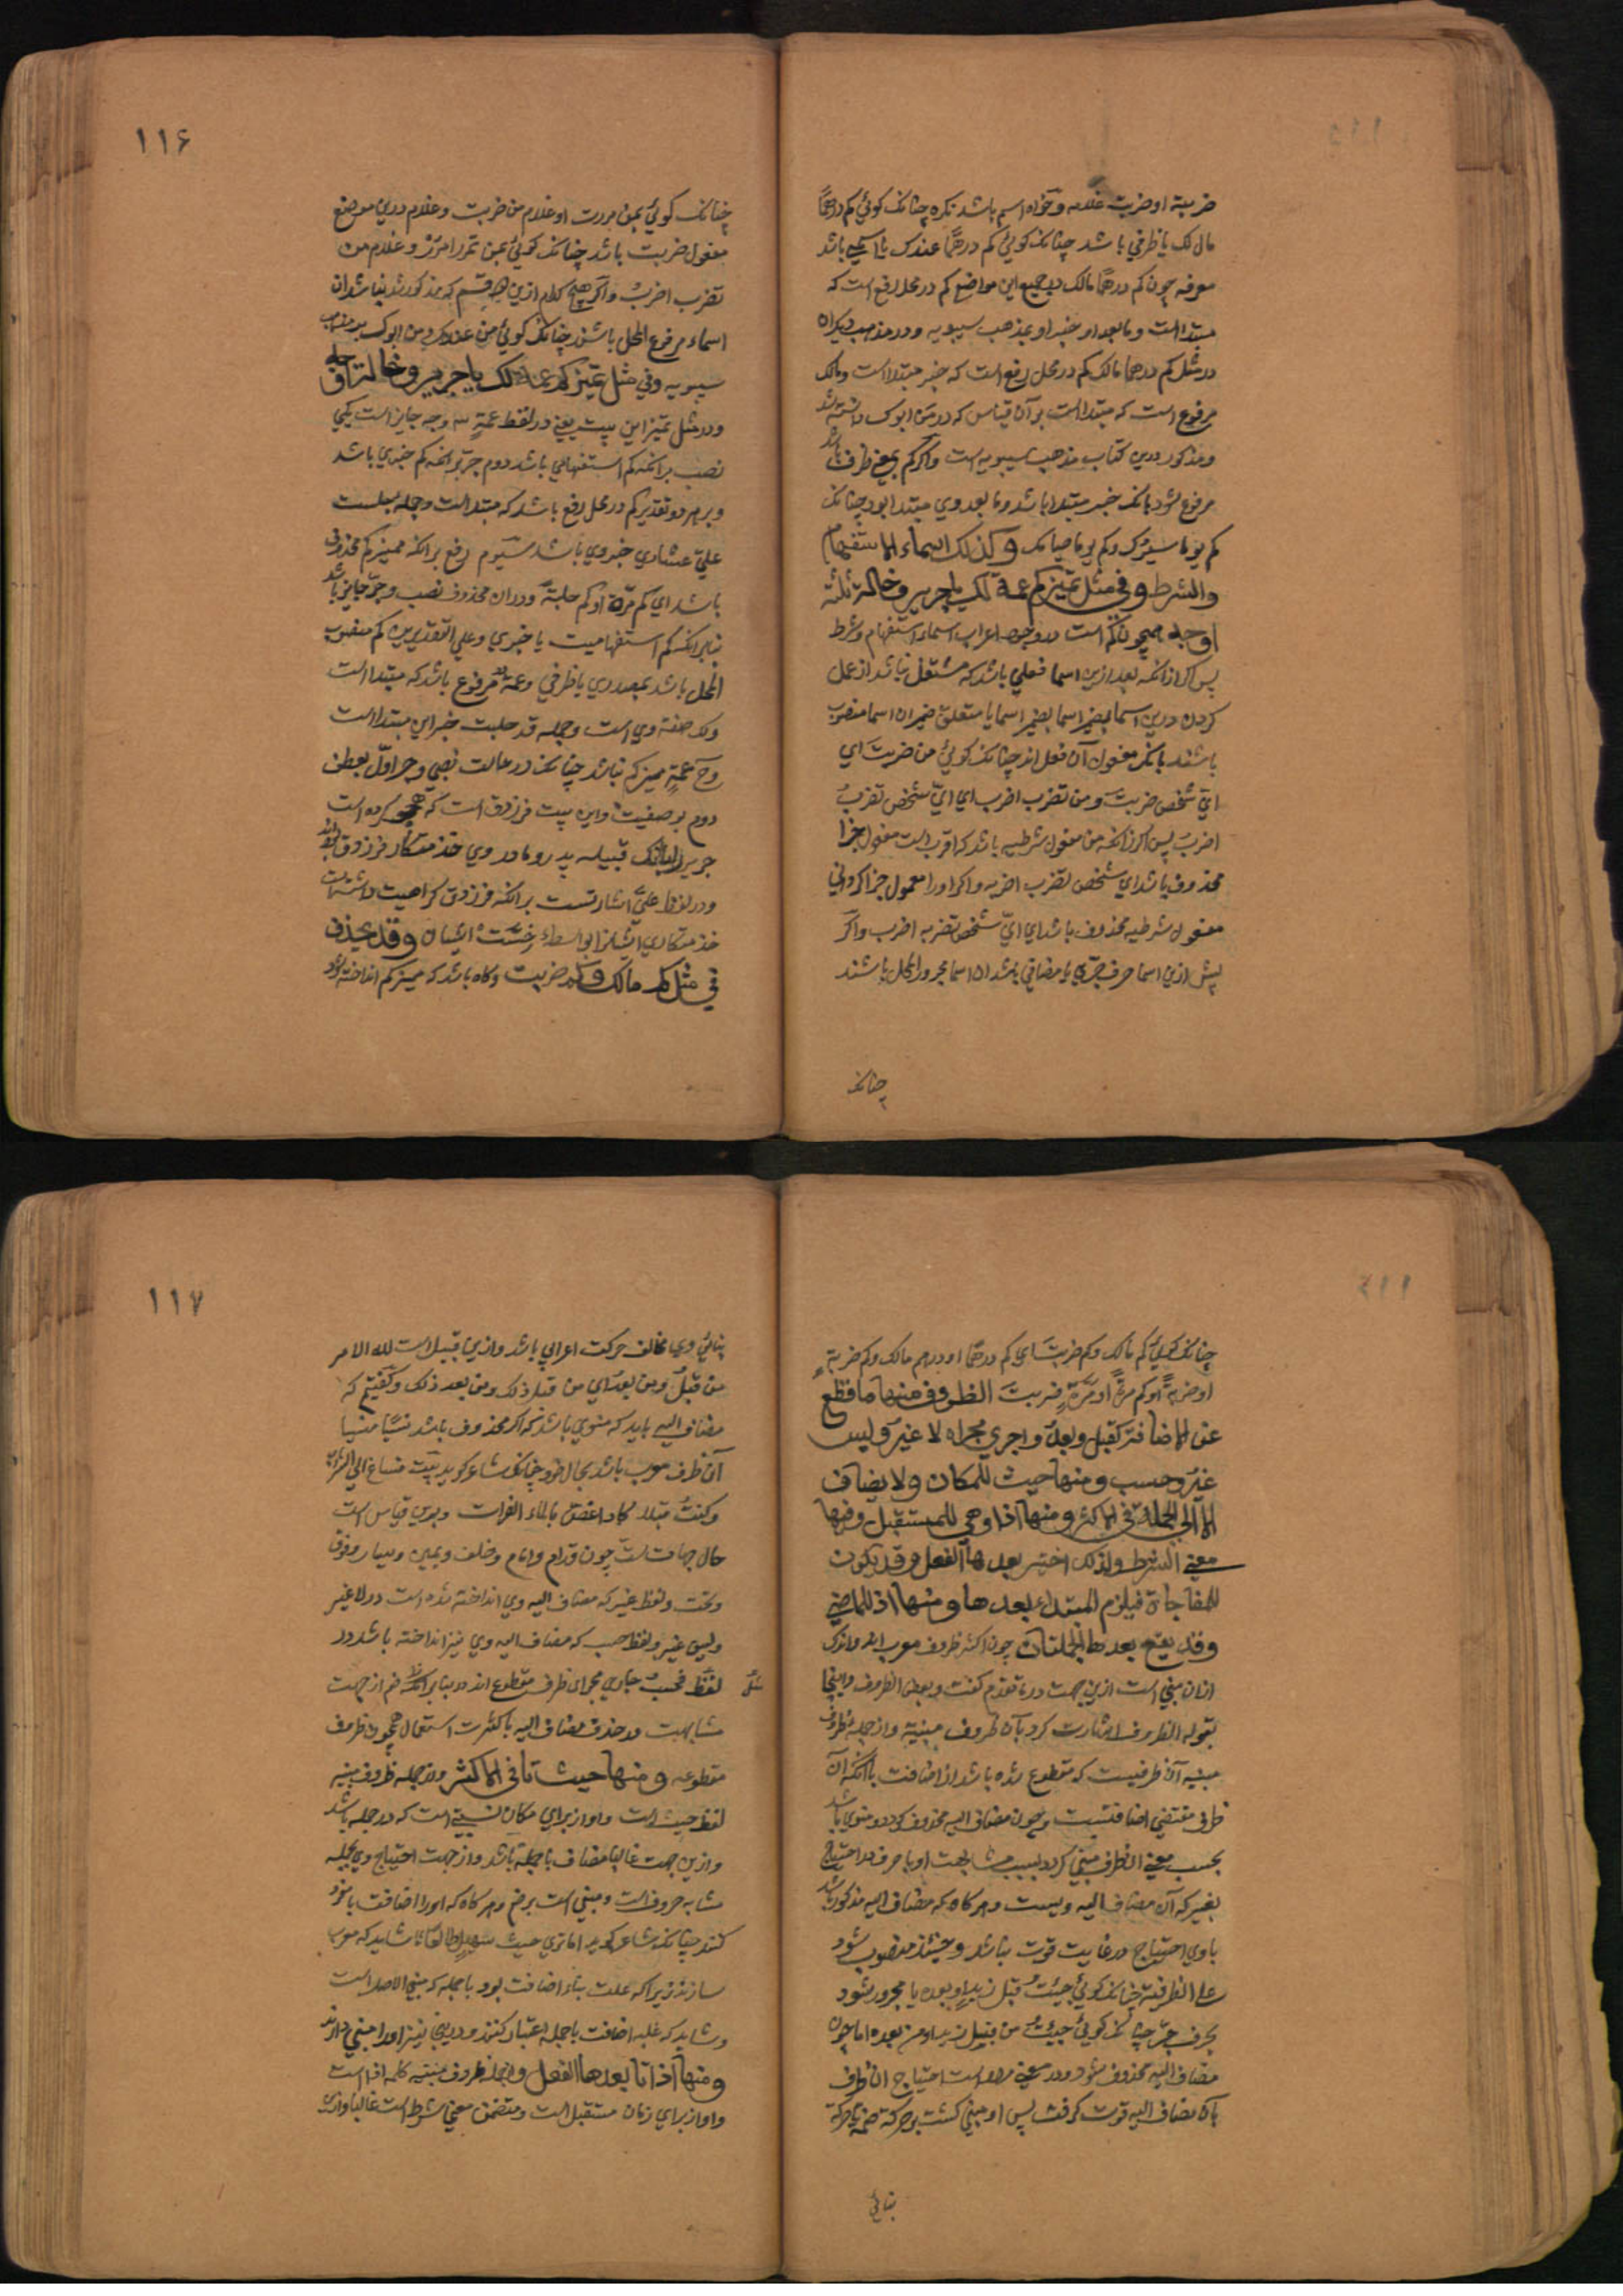 ضربته او ضربت غلامه وخواه اسم باشد نکره چنانک کوئي کم درهمًا
مال لک یا ظرفي باشد چنانک کوئي کم درهمًا عندک یا اسمي باشد
معرفه چون کم درهمًا مالک در جمیع این مواضع کم در محل رفع است که
مبتداست وما بعد او خبر او بمذهب سیبویه ودر مذهب دیکران
در مثل کم درهما مالک کم در محل رفع است که خبر مبتدا است ومالک
مرفوع است که مبتداست بر آن قیاس که در من ابوک دانسته شد
ومذکور درین کتاب مذهب سیبویه است واکر کم بمعني ظرف باشد
مرفوع شود بانک خبر مبتدا باشد وما بعد وي مبتدا بود چنانک
کم یوما سیرک وکم یوما صیامک وکذلک اسماء الاستفهام
والشرط وفي مثل تمیز کم عمة لک یا جریر وخالة ثلثة
اوجه همچون کم است در وجوه اعراب اسماء استفهام وشرط
پس اکر از انکه بعد ازین اسما فعلي باشد که مشتغل نباشد از عمل
کردن درین اسما بضمیر اسما یا متعلق ضمیر ان اسما منصوب
باشند بانک مفعول آن فعل اند چنانک کوئي من ضربتَ اي
ايّ شخص ضربتَ ومن تضرب اضرب اي ايّ شخص تضربُ
اضرب پس اکر زانکه من مفعول شرطیه باشد که اقرب است مفعول جزا
محذوف باشد اي شخص تضرب اضربه واکر او را معمول جزا کرداني
مفعول شرطیه محذوف باشد اي ايّ شخص تضربه اضرب واکر
پیش ازین اسما حرف جرّي یا مضافي باشد ان اسما مجرور المحل باشند
چنانک
١١۶
چنانک کوئي بمن مررت او غلام من ضربت وغلام درین موضع
مفعول ضربت باشد چنانک کوئي بمن تمرر امرر وغلام من
تضرب اضربْ واکر هیچ کدام ازین سه قسم که مذکور شد نباشد ان
اسماء مرفوع المحل باشند چنانک کوئي من غلامک ومن ابوک بر مذهب
سیبویه وفي مثل تمیز کم عمة لک یا جریر وخالة ثلثة اوجه
ودر مثل تمیز این بیت یعني در لفظ عمةٍ سه وجه جایز است یکي
نصب بر انکه کم استفهامي باشد دوم جر بر انکه کم خبري باشد
وبر هر دو تقدیر کم در محل رفع باشد که مبتداست وجمله حلبت
عليّ عشاري خبر وي باشد سیوم رفع بر انکه ممیز کم محذوف
باشد اي کم مرّة او کم حلبةً ودر ان محذوف نصب وجرّ جایز باشد
بنابر انکه کم استفهامیست یا خبري وعلي التقدیرین کم منصوب
المحل باشد بمصدري یا ظرفي وعمةٌ مرفوع باشد که مبتدا است
ولک صفة وي است وجمله قد حلبت خبر این مبتدا است
وح عمةٍ ممیز کم نباشد چنانک در حالت نصبي وجر اوّل بعطف
دوم بوصفیت واین بیت فرزدق است که هجو کرده است
جریر را بانک قبیله پدر ومادر وي خدمتکار فرزدق بوده اند
ودر لفظ عليّ اشارتست بر انکه فرزدق کراهیت داشته است
خدمتکاري ایشانرا بواسطه خسّت ایشان وقد یحذف
في مثل کم مالک وکم ضربت وکاه باشد که ممیز کم انداخته شود
چنانک کوئي کم مالک وکم ضربتَ اي کم درهمًا او درهم مالک وکم ضربةٍ
او ضربةً او کم مرةً او مرّةٍ ضربتَ الظروف منها ما قطع
عن الاضافة کقبل وبعد واجري مجراه لا غیر ولیس
غیر وحسب ومنها حیث للمکان ولا یضاف
الا الي الجملة في الاکثر ومنها اذا وهي للمستقبل وفیها
معني الشرط ولذلک اختیر بعدها الفعل وقد یکون
للمفاجاة فیلزم المبتداء بعدها ومنها اذ للماضي
وقد یقع بعدها الجملتان چون اکثر ظروف معرب اند واندک
ازان مبني است ازین جهت در ما تقدم کفت وبعض الظروف واینجا
بقوله الظروف اشارت کرد بآن ظروف مبنیة واز جمله ظروف
مبنیه آن ظرفیست که مقطوع شده باشد از اضافت با انکه آن
ظرف مقتضي اضافتست وچون مضاف الیه محذوف کردد ومنوي باشد
بحسب معني ان ظرف مبني کردد بسبب مشابهت او با حرف در احتیاج
بغیر که آن مضاف الیه ویست وهر کاه که مضاف الیه مذکور باشد
با وي احتیاج در غایت قوت نباشد وحینئذ منصوب شود
علي الظرفیة چنانک کوئي جئتُ قبل زیدٍ او بعده یا مجرور شود
بحرف جرّ چنانک کوئي جئتُ من قبل زید او من بعده اما چون
مضاف الیه محذوف شود ودر معني مراد است احتیاج ان ظرف
بان مضاف الیه قوت کرفت پس او مبني کشت بر حرکة ضمه تا حرکة
بنائي
١١٧
بنائي وي مخالف حرکت اعرابي باشد وازین قبیل است لله الامر
من قبلُ ومن بعدُ اي من قبل ذلک ومن بعد ذلک وکفتیم که
مضاف الیه باید که منوي باشد که اکر محذوف باشد نسیًا منسیا
آن ظرف معرب باشد بحال خود چنانک شاعر کوید بیت فساغ الي الشراب
وکنتُ قبلا اکاد اغصّ بالماء الفرات وبرین قیاس است
حال جهات ستّ چون قدام وامام وخلف ویمین ویسار وفوق
وتحت ولفظ غیر که مضاف الیه وي انداخته شده است در لا غیر
ولیس غیر ولفظ حسب که مضاف الیه وي نیز انداخته باشد در
لفظ فحسبُ جاري مجراي ظرف مقطوع اند در بنا بر انک ضم از جهت
مشابهت در حذف مضاف الیه با کثرت استعمال همچون ظروف
مقطوعه ومنها حیث تا في الاکثر واز جمله ظروف مبنیه
لفظ حیث است واو از براي مکان نسبتي است که در جمله باشد
وازین جهت غالبا مضاف باجمله باشد واز جهت احتیاج وي بجمله
مشابه حروف است ومبني است بر ضم وهر کاه که او را اضافت بامفرد
کنند چنانک شاعر کوید اما تري حیث سهیل طالعًا شاید که معرب
سازند زیراکه علت بناء اضافت بود باجمله که مبني الاصل است
وشاید که غلبه اضافت باجمله اعتبار کنند ودرینجا نیز او را مبني دارند
ومنها اذا تا بعدها الفعل واز جمله ظروف مبنیه کلمه اذا است
واو از براي زمان مستقبل است ومتضمن معني شرط است غالبا وازین